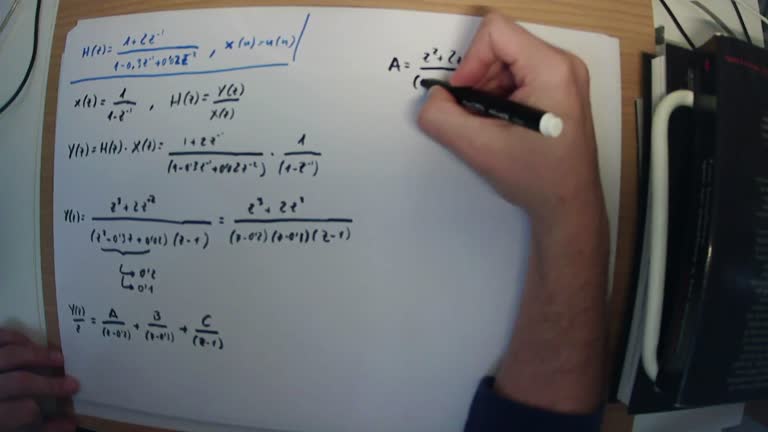 H(z)= (1+2z⁻¹)/(1-0,3z⁻¹+0'02z⁻²) , x(n)=u(n)
X(z)= 1/(1-z⁻¹) , H(z)= Y(z)/X(z)
Y(z)=H(z)·X(z)= (1+2z⁻¹)/(1-0'3z⁻¹+0'02z⁻²) · 1/(1-z⁻¹)
Y(z)= (z³+2z²)/((z²-0'3z+0'02)(z-1)) = (z³+2z²)/((z-0'2)(z-0'1)(z-1))
↳ 0'2
↳ 0'1
Y(z)/z = A/(z-0'2) + B/(z-0'1) + C/(z-1)
A= z²+2z
(